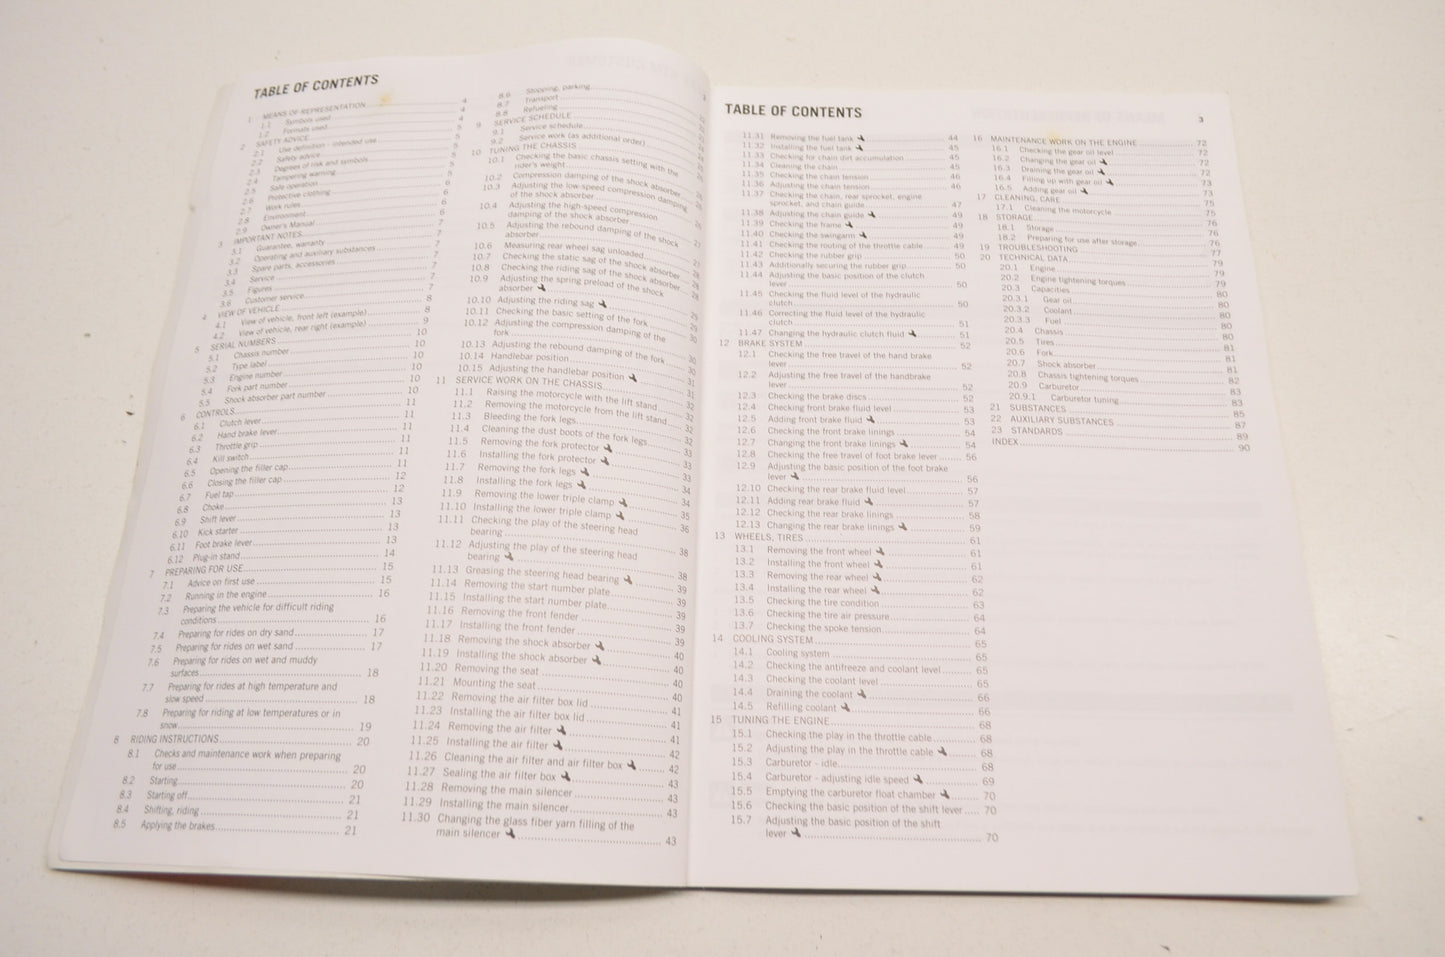 TABLE OF CONTENTS
1 MEANS OF REPRESENTATION 4
1.1 Symbols used 4
1.2 Formats used 4
2 SAFETY ADVICE 5
2.1 Use definition - intended use 5
2.2 Safety advice 5
2.3 Degrees of risk and symbols 5
2.4 Tampering warning 5
2.5 Safe operation 5
2.6 Protective clothing 6
2.7 Work rules 6
2.8 Environment 6
2.9 Owner's Manual 6
3 IMPORTANT NOTES 7
3.1 Guarantee, warranty 7
3.2 Operating and auxiliary substances 7
3.3 Spare parts, accessories 7
3.4 Service 7
3.5 Figures 7
3.6 Customer service 7
4 VIEW OF VEHICLE 8
4.1 View of vehicle, front left (example) 8
4.2 View of vehicle, rear right (example) 9
5 SERIAL NUMBERS 10
5.1 Chassis number 10
5.2 Type label 10
5.3 Engine number 10
5.4 Fork part number 10
5.5 Shock absorber part number 10
6 CONTROLS 11
6.1 Clutch lever 11
6.2 Hand brake lever 11
6.3 Throttle grip 11
6.4 Kill switch 11
6.5 Opening the filler cap 11
6.6 Closing the filler cap 12
6.7 Fuel tap 12
6.8 Choke 13
6.9 Shift lever 13
6.10 Kick starter 13
6.11 Foot brake lever 13
6.12 Plug-in stand 14
7 PREPARING FOR USE 15
7.1 Advice on first use 15
7.2 Running in the engine 16
7.3 Preparing the vehicle for difficult riding
conditions 16
7.4 Preparing for rides on dry sand 17
7.5 Preparing for rides on wet sand 17
7.6 Preparing for rides on wet and muddy
surfaces 18
7.7 Preparing for rides at high temperature and
slow speed 18
7.8 Preparing for riding at low temperatures or in
snow 19
8 RIDING INSTRUCTIONS 20
8.1 Checks and maintenance work when preparing
for use 20
8.2 Starting 20
8.3 Starting off 21
8.4 Shifting, riding 21
8.5 Applying the brakes 21
8.6 Stopping, parking
8.7 Transport
8.8 Refueling
9 SERVICE SCHEDULE
9.1 Service schedule
9.2 Service work (as additional order)
10 TUNING THE CHASSIS
10.1 Checking the basic chassis setting with the
rider's weight
10.2 Compression damping of the shock absorber
10.3 Adjusting the low-speed compression damping
of the shock absorber
10.4 Adjusting the high-speed compression
damping of the shock absorber
10.5 Adjusting the rebound damping of the shock
absorber
10.6 Measuring rear wheel sag unloaded
10.7 Checking the static sag of the shock absorber
10.8 Checking the riding sag of the shock absorber
10.9 Adjusting the spring preload of the shock
absorber
10.10 Adjusting the riding sag 29
10.11 Checking the basic setting of the fork 29
10.12 Adjusting the compression damping of the
fork 30
10.13 Adjusting the rebound damping of the fork 30
10.14 Handlebar position 30
10.15 Adjusting the handlebar position 31
11 SERVICE WORK ON THE CHASSIS 32
11.1 Raising the motorcycle with the lift stand 32
11.2 Removing the motorcycle from the lift stand 32
11.3 Bleeding the fork legs 32
11.4 Cleaning the dust boots of the fork legs 32
11.5 Removing the fork protector 33
11.6 Installing the fork protector 33
11.7 Removing the fork legs 33
11.8 Installing the fork legs 34
11.9 Removing the lower triple clamp 34
11.10 Installing the lower triple clamp 35
11.11 Checking the play of the steering head
bearing 36
11.12 Adjusting the play of the steering head
bearing 38
11.13 Greasing the steering head bearing 38
11.14 Removing the start number plate 39
11.15 Installing the start number plate 39
11.16 Removing the front fender 39
11.17 Installing the front fender 39
11.18 Removing the shock absorber 39
11.19 Installing the shock absorber 40
11.20 Removing the seat 40
11.21 Mounting the seat 40
11.22 Removing the air filter box lid 40
11.23 Installing the air filter box lid 41
11.24 Removing the air filter 41
11.25 Installing the air filter 41
11.26 Cleaning the air filter and air filter box 42
11.27 Sealing the air filter box 42
11.28 Removing the main silencer 43
11.29 Installing the main silencer 43
11.30 Changing the glass fiber yarn filling of the
main silencer 43
TABLE OF CONTENTS 3
11.31 Removing the fuel tank 44
11.32 Installing the fuel tank 45
11.33 Checking for chain dirt accumulation 45
11.34 Cleaning the chain 45
11.35 Checking the chain tension 46
11.36 Adjusting the chain tension 46
11.37 Checking the chain, rear sprocket, engine
sprocket, and chain guide 47
11.38 Adjusting the chain guide 49
11.39 Checking the frame 49
11.40 Checking the swingarm 49
11.41 Checking the routing of the throttle cable 49
11.42 Checking the rubber grip 50
11.43 Additionally securing the rubber grip 50
11.44 Adjusting the basic position of the clutch
lever 50
11.45 Checking the fluid level of the hydraulic
clutch 50
11.46 Correcting the fluid level of the hydraulic
clutch 51
11.47 Changing the hydraulic clutch fluid 51
12 BRAKE SYSTEM 52
12.1 Checking the free travel of the hand brake
lever 52
12.2 Adjusting the free travel of the handbrake
lever 52
12.3 Checking the brake discs 52
12.4 Checking front brake fluid level 53
12.5 Adding front brake fluid 53
12.6 Checking the front brake linings 54
12.7 Changing the front brake linings 54
12.8 Checking the free travel of foot brake lever 56
12.9 Adjusting the basic position of the foot brake
lever 56
12.10 Checking the rear brake fluid level 57
12.11 Adding rear brake fluid 57
12.12 Checking the rear brake linings 58
12.13 Changing the rear brake linings 59
13 WHEELS, TIRES 61
13.1 Removing the front wheel 61
13.2 Installing the front wheel 61
13.3 Removing the rear wheel 62
13.4 Installing the rear wheel 62
13.5 Checking the tire condition 63
13.6 Checking the tire air pressure 64
13.7 Checking the spoke tension 64
14 COOLING SYSTEM 65
14.1 Cooling system 65
14.2 Checking the antifreeze and coolant level 65
14.3 Checking the coolant level 65
14.4 Draining the coolant 66
14.5 Refilling coolant 66
15 TUNING THE ENGINE 68
15.1 Checking the play in the throttle cable 68
15.2 Adjusting the play in the throttle cable 68
15.3 Carburetor - idle 68
15.4 Carburetor - adjusting idle speed 69
15.5 Emptying the carburetor float chamber 70
15.6 Checking the basic position of the shift lever 70
15.7 Adjusting the basic position of the shift
lever 70
16 MAINTENANCE WORK ON THE ENGINE 72
16.1 Checking the gear oil level 72
16.2 Changing the gear oil 72
16.3 Draining the gear oil 72
16.4 Filling up with gear oil 73
16.5 Adding gear oil 73
17 CLEANING, CARE 75
17.1 Cleaning the motorcycle 75
18 STORAGE 76
18.1 Storage 76
18.2 Preparing for use after storage 76
19 TROUBLESHOOTING 77
20 TECHNICAL DATA 79
20.1 Engine 79
20.2 Engine tightening torques 79
20.3 Capacities 80
20.3.1 Gear oil 80
20.3.2 Coolant 80
20.3.3 Fuel 80
20.4 Chassis 80
20.5 Tires 81
20.6 Fork 81
20.7 Shock absorber 81
20.8 Chassis tightening torques 82
20.9 Carburetor 83
20.9.1 Carburetor tuning 83
21 SUBSTANCES 85
22 AUXILIARY SUBSTANCES 87
23 STANDARDS 89
INDEX 90